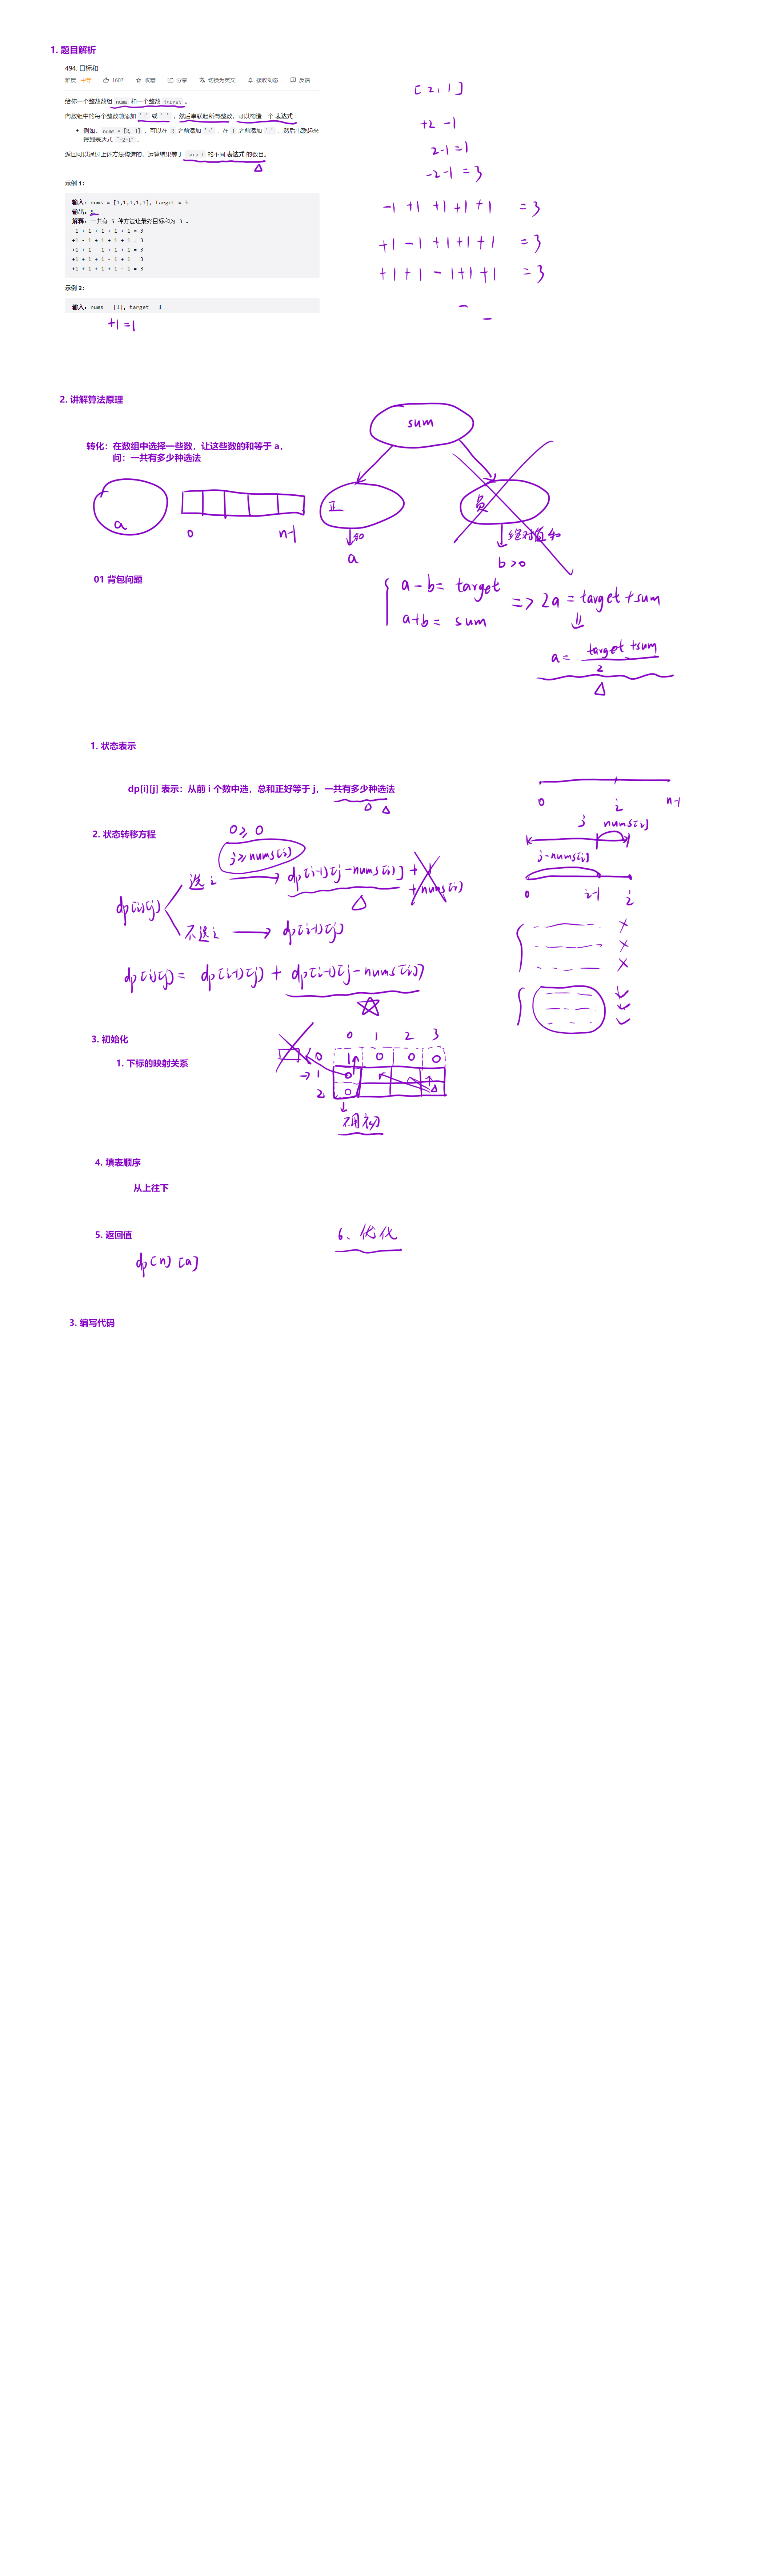 1. 题目解析
494. 目标和
难度 中等 1607 收藏 分享 切换为英文 接收动态 反馈
给你一个整数数组 nums 和一个整数 target 。
向数组中的每个整数前添加 '+' 或 '-' ，然后串联起所有整数，可以构造一个 表达式 ：
• 例如，nums = [2, 1] ，可以在 2 之前添加 '+' ，在 1 之前添加 '-' ，然后串联起来
得到表达式 "+2-1" 。
返回可以通过上述方法构造的、运算结果等于 target 的不同 表达式 的数目。
示例 1：
输入：nums = [1,1,1,1,1], target = 3
输出：5
解释：一共有 5 种方法让最终目标和为 3 。
-1 + 1 + 1 + 1 + 1 = 3
+1 - 1 + 1 + 1 + 1 = 3
+1 + 1 - 1 + 1 + 1 = 3
+1 + 1 + 1 - 1 + 1 = 3
+1 + 1 + 1 + 1 - 1 = 3
示例 2：
输入：nums = [1], target = 1
+1 = 1
[2, 1]
+2 -1
2-1 = 1
-2-1 = 3
-1 +1 +1 +1 +1 = 3
+1 -1 +1 +1 +1 = 3
+1 +1 -1 +1 +1 = 3
2. 讲解算法原理
转化：在数组中选择一些数，让这些数的和等于 a，
问：一共有多少种选法
a
0 n-1
sum
正 负
和 绝对值和
a b>0
01 背包问题
a - b = target
a + b = sum
=> 2a = target + sum
a = (target + sum) / 2
1. 状态表示
dp[i][j] 表示：从前 i 个数中选，总和正好等于 j，一共有多少种选法
0 i n-1
2. 状态转移方程
0 ≥ 0
j ≥ nums[i]
dp[i][j]
选 i → dp[i-1][j-nums[i]] + 1
+ nums[i]
不选 i → dp[i-1][j]
dp[i][j] = dp[i-1][j] + dp[i-1][j-nums[i]]
j nums[i]
j-nums[i]
0 i-1 i
3. 初始化
1. 下标的映射关系
0 1 2 3
0 1 0 0 0
1 0
2 0
不用初
4. 填表顺序
从上往下
5. 返回值
dp[n][a]
6、优化
3. 编写代码